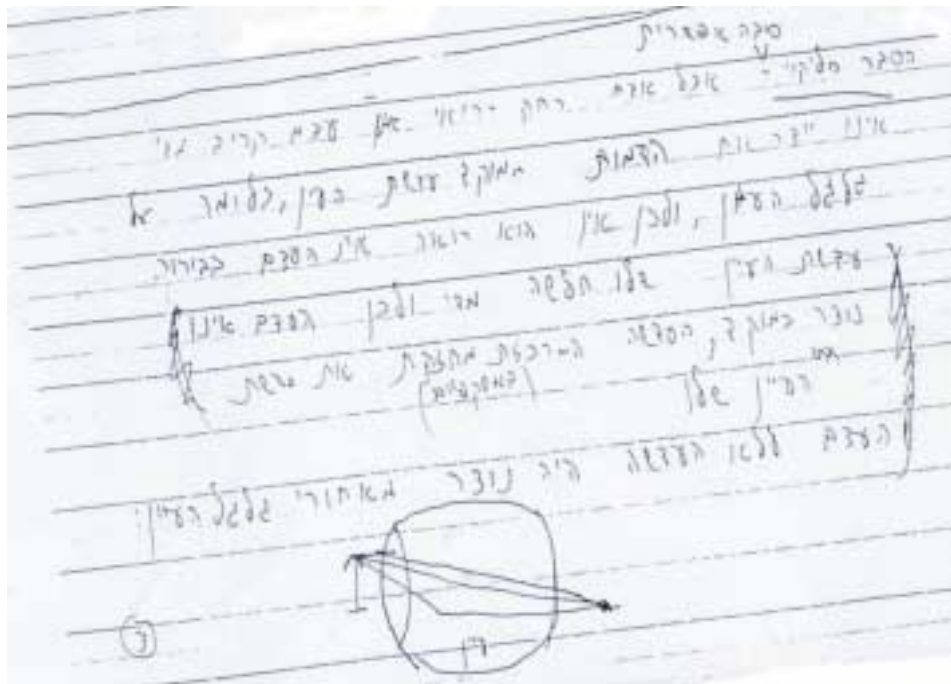 סבה אפשרית
הסבר חלקי - אצל אדם רחוק רואי עצם קריב
אינו יוצר את הדמות ממוקד עדשת העין, כלומר על
גלגל העין, ולכן אין הוא רואה את העצם בבירור.
עדשת העין שלו חלשה מדי ולכן העצם אינו
נוצר במוקד, העדשה המרכזת מחזקת את עדשת
העין שלו (במשקפיים)
העצם ללא העדשה היה נוצר מאחורי גלגל העין:
עין